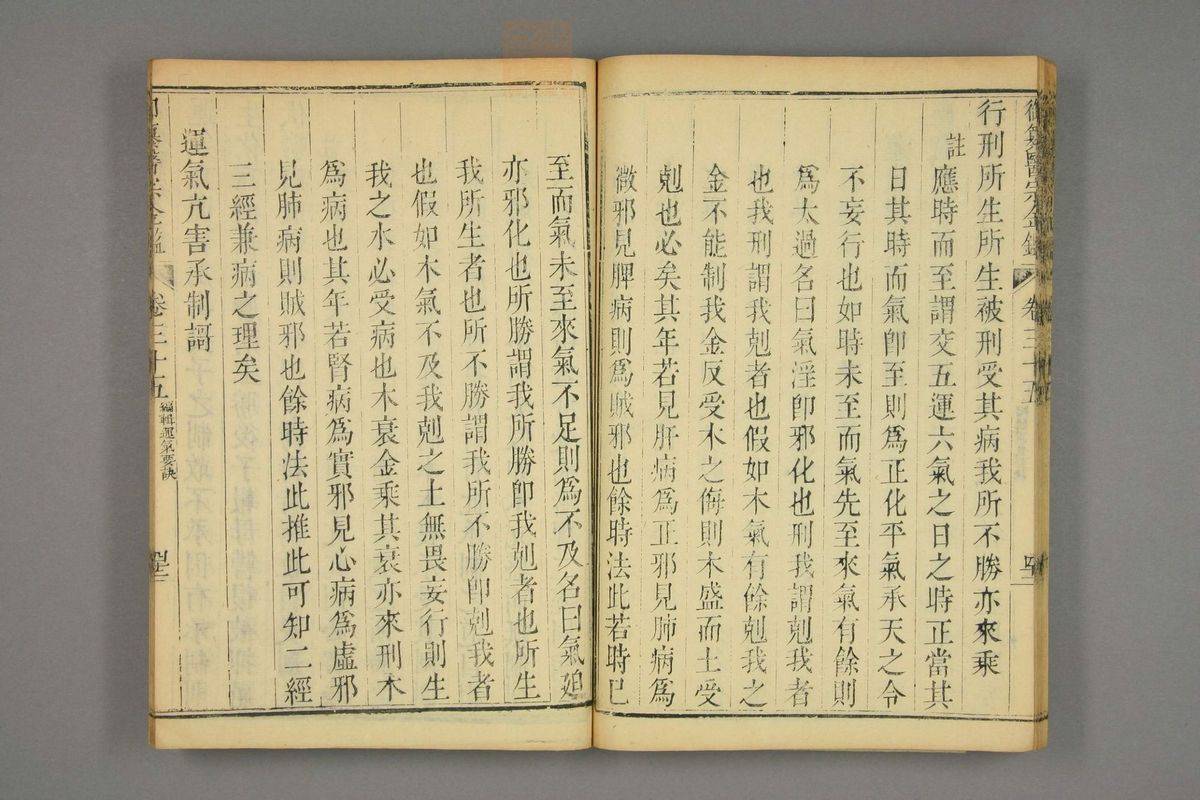 御纂醫宗金鑑 卷三十五
行刑所生所生被刑受其病我所不勝亦來乘
註
應時而至謂交五運六氣之日之時正當其
日其時而氣卽至則爲正化平氣承天之令
不妄行也如時未至而氣先至來氣有餘則
爲太過名曰氣淫卽邪化也刑我謂剋我者
也我刑謂我剋者也假如木氣有餘剋我之
金不能制我金反受木之侮則木盛而土受
剋也必矣其年若見肝病爲正邪見肺病爲
微邪見脾病則爲賊邪也餘時法此若時已
至而氣未至來氣不足則爲不及名曰氣廹
亦邪化也所勝謂我所勝卽我剋者也所生
我所生者也所不勝謂我所不勝卽剋我者
也假如木氣不及我剋之土無畏妄行則生
我之水必受病也木衰金乘其衰亦來刑木
爲病也其年若腎病爲實邪見心病爲虛邪
見肺病則賊邪也餘時法此推此可知二經
三經兼病之理矣
運氣亢害承制謌
卷三十五 編輯運氣要訣